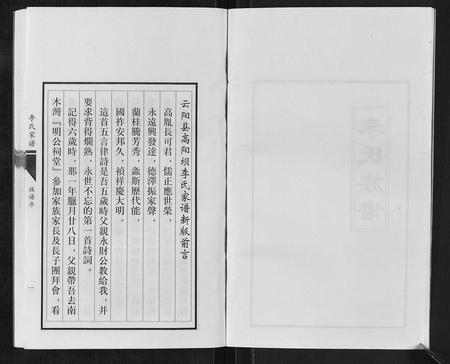 云阳县高阳坝李氏家谱新版前言
高胤長可君，儒正應世榮，
永遠興發達，德澤振家聲。
蘭桂騰芳秀，螽斯歷代能，
國祚安邦久，禎祥慶大明。
這首五言律詩是吾五歲時父親永財公教給我，并
要求背得爛熟，永世不忘的第一首詩詞。
記得六歲時，那一年臘月廿八日，父親帶吾去南
木灣『明公祠堂』參加家族家長及長子團拜會，看
李氏家谱
族谱序
一
李氏族谱